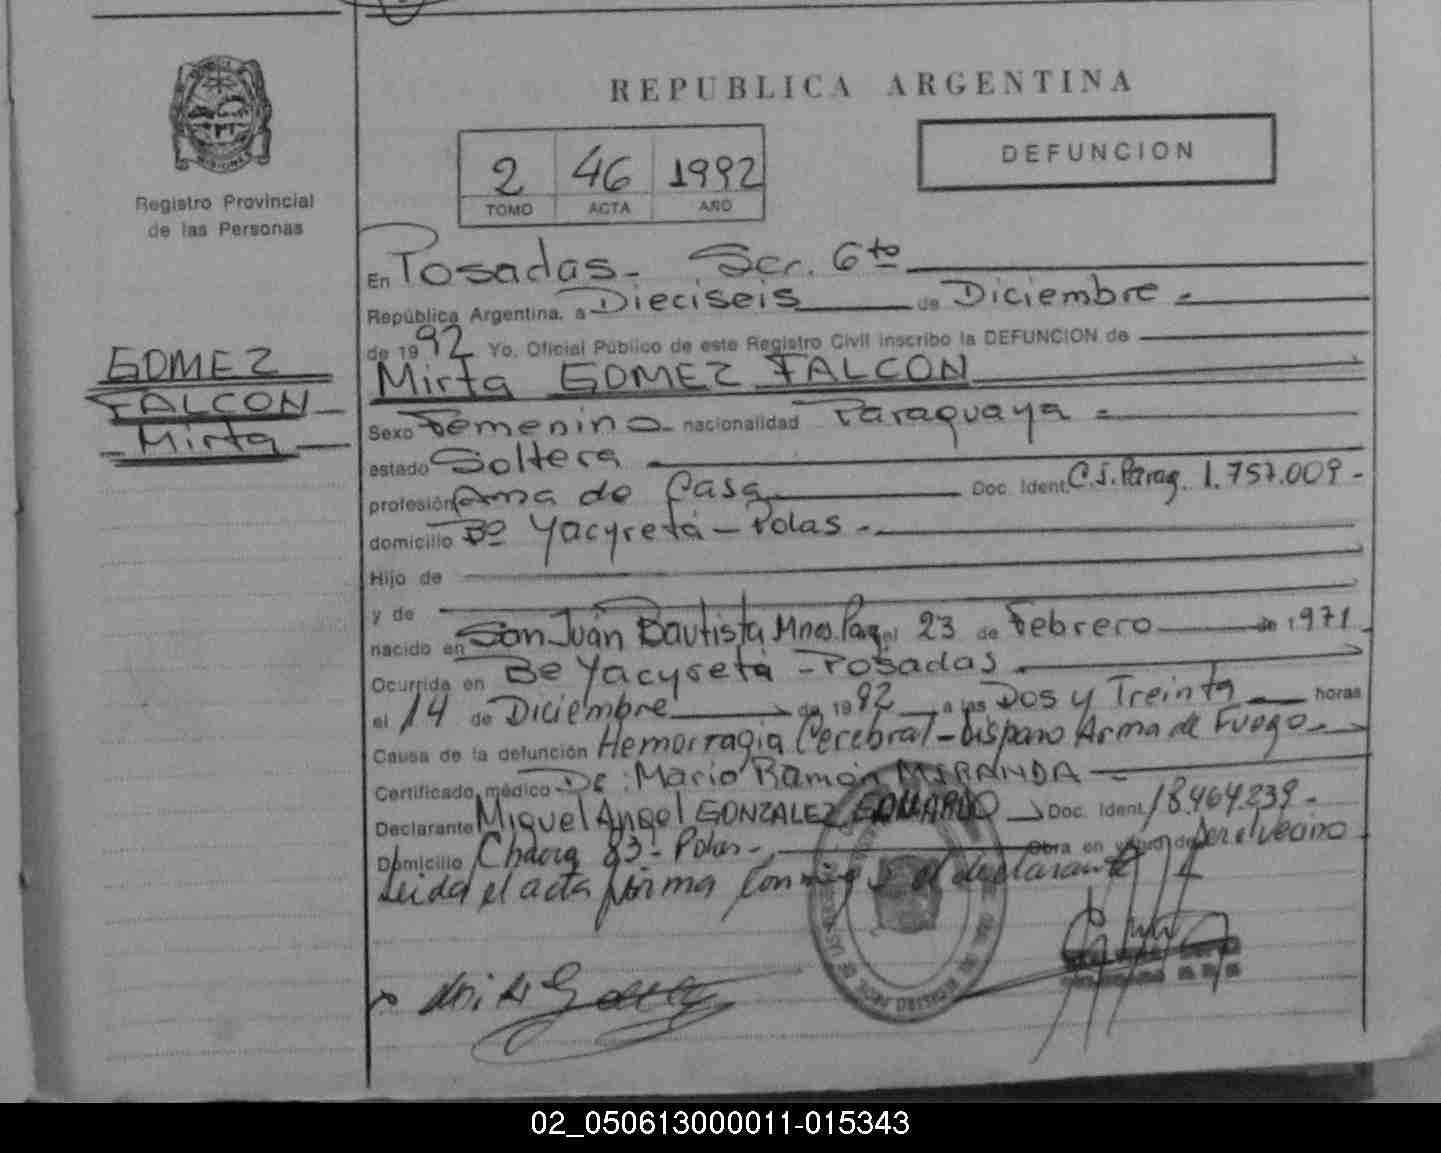 REPUBLICA ARGENTINA
MISIONES
Registro Provincial
de las Personas
2 46 1992
TOMO ACTA AÑO
DEFUNCION
GOMEZ
FALCON
Mirta
En Posadas - Scr. 6to
República Argentina, a Dieciseis de Diciembre -
de 1992 Yo, Oficial Público de este Registro Civil inscribo la DEFUNCION de
Mirta GOMEZ FALCON
Sexo Femenino - nacionalidad Paraguaya -
estado Soltera
profesión Ama de Casa Doc. Ident. C.I. Parag. 1.757.009 -
domicilio Bº Yacyretá - Pdas -
Hijo de
y de
nacido en San Juan Bautista Mnes. Pag el 23 de Febrero de 1971
Ocurrida en Bº Yacyretá - Posadas
el 14 de Diciembre de 1992 a las Dos y Treinta horas
Causa de la defunción Hemorragia Cerebral - Disparo Arma de Fuego -
Certificado médico Dr: Mario Ramón MIRANDA
Declarante Miguel Angel GONZALEZ Doc. Ident. 18.464.239 -
Domicilio 83 - Pdas - Obra en virtud de Ser el vecino
Leida el acta firma conmigo el declarante
02_050613000011-015343